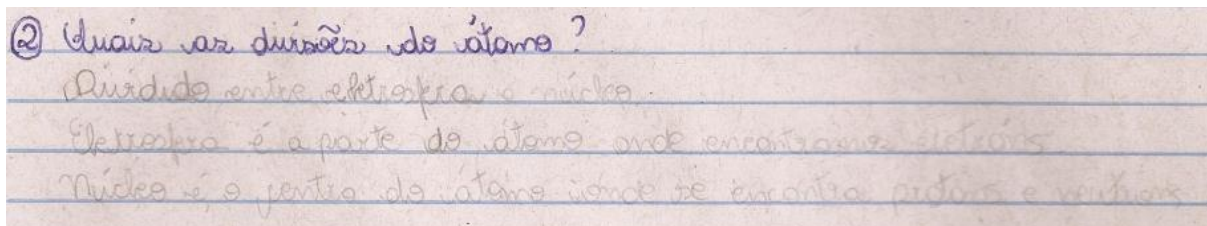 ② Quais as divisões do átomo?
Dividido entre eletrosfera e núcleo.
Eletrosfera é a parte do átomo onde encontramos elétrons
Núcleo é o centro do átomo onde se encontra prótons e neutrons